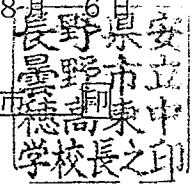 8月 6日
長野県安
曇野市立
市 印
穂高東中
学校長之印